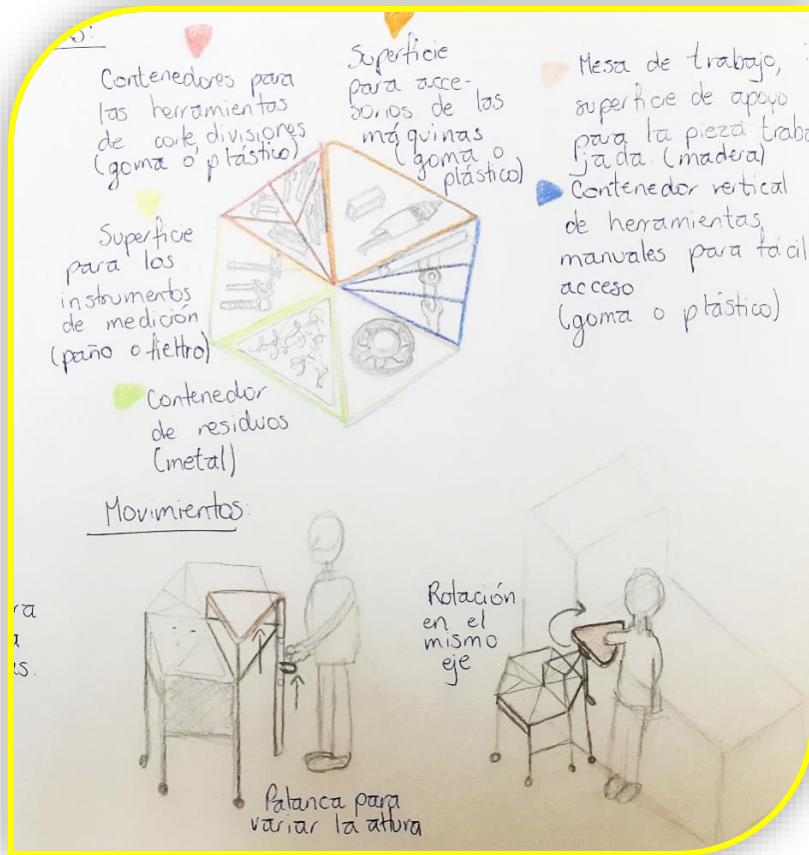 s:
Contenedores para
las herramientas
de corte, divisiones
(goma o plástico)
Superficie
para acce-
sorios de las
máquinas
(goma o
plástico)
Mesa de trabajo,
superficie de apoyo
para la pieza traba
jada. (madera)
Contenedor vertical
de herramientas
manuales para fácil
acceso
(goma o plástico)
Superficie
para los
instrumentos
de medición
(paño o fieltro)
Contenedor
de residuos
(metal)
Movimientos:
ra
a
as.
Rotación
en el
mismo
eje
Palanca para
variar la altura